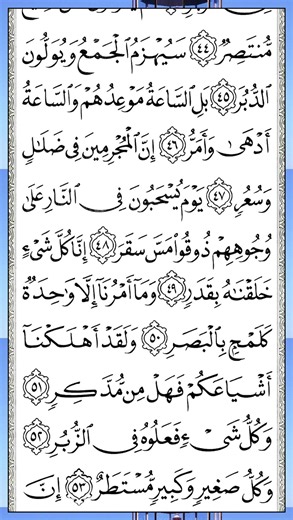 مُّنتَصِرٌ ٤٤ سَيُهْزَمُ ٱلْجَمْعُ وَيُوَلُّونَ
ٱلدُّبُرَ ٤٥ بَلِ ٱلسَّاعَةُ مَوْعِدُهُمْ وَٱلسَّاعَةُ
أَدْهَىٰ وَأَمَرُّ ٤٦ إِنَّ ٱلْمُجْرِمِينَ فِى ضَلَـٰلٍ
وَسُعُرٍ ٤٧ يَوْمَ يُسْحَبُونَ فِى ٱلنَّارِ عَلَىٰ
وُجُوهِهِمْ ذُوقُوا۟ مَسَّ سَقَرَ ٤٨ إِنَّا كُلَّ شَىْءٍ
خَلَقْنَـٰهُ بِقَدَرٍ ٤٩ وَمَآ أَمْرُنَآ إِلَّا وَٰحِدَةٌ
كَلَمْحٍۭ بِٱلْبَصَرِ ٥٠ وَلَقَدْ أَهْلَكْنَآ
أَشْيَاعَكُمْ فَهَلْ مِن مُّدَّكِرٍ ٥١
وَكُلُّ شَىْءٍ فَعَلُوهُ فِى ٱلزُّبُرِ ٥٢
وَكُلُّ صَغِيرٍ وَكَبِيرٍ مُّسْتَطَرٌ ٥٣ إِنَّ